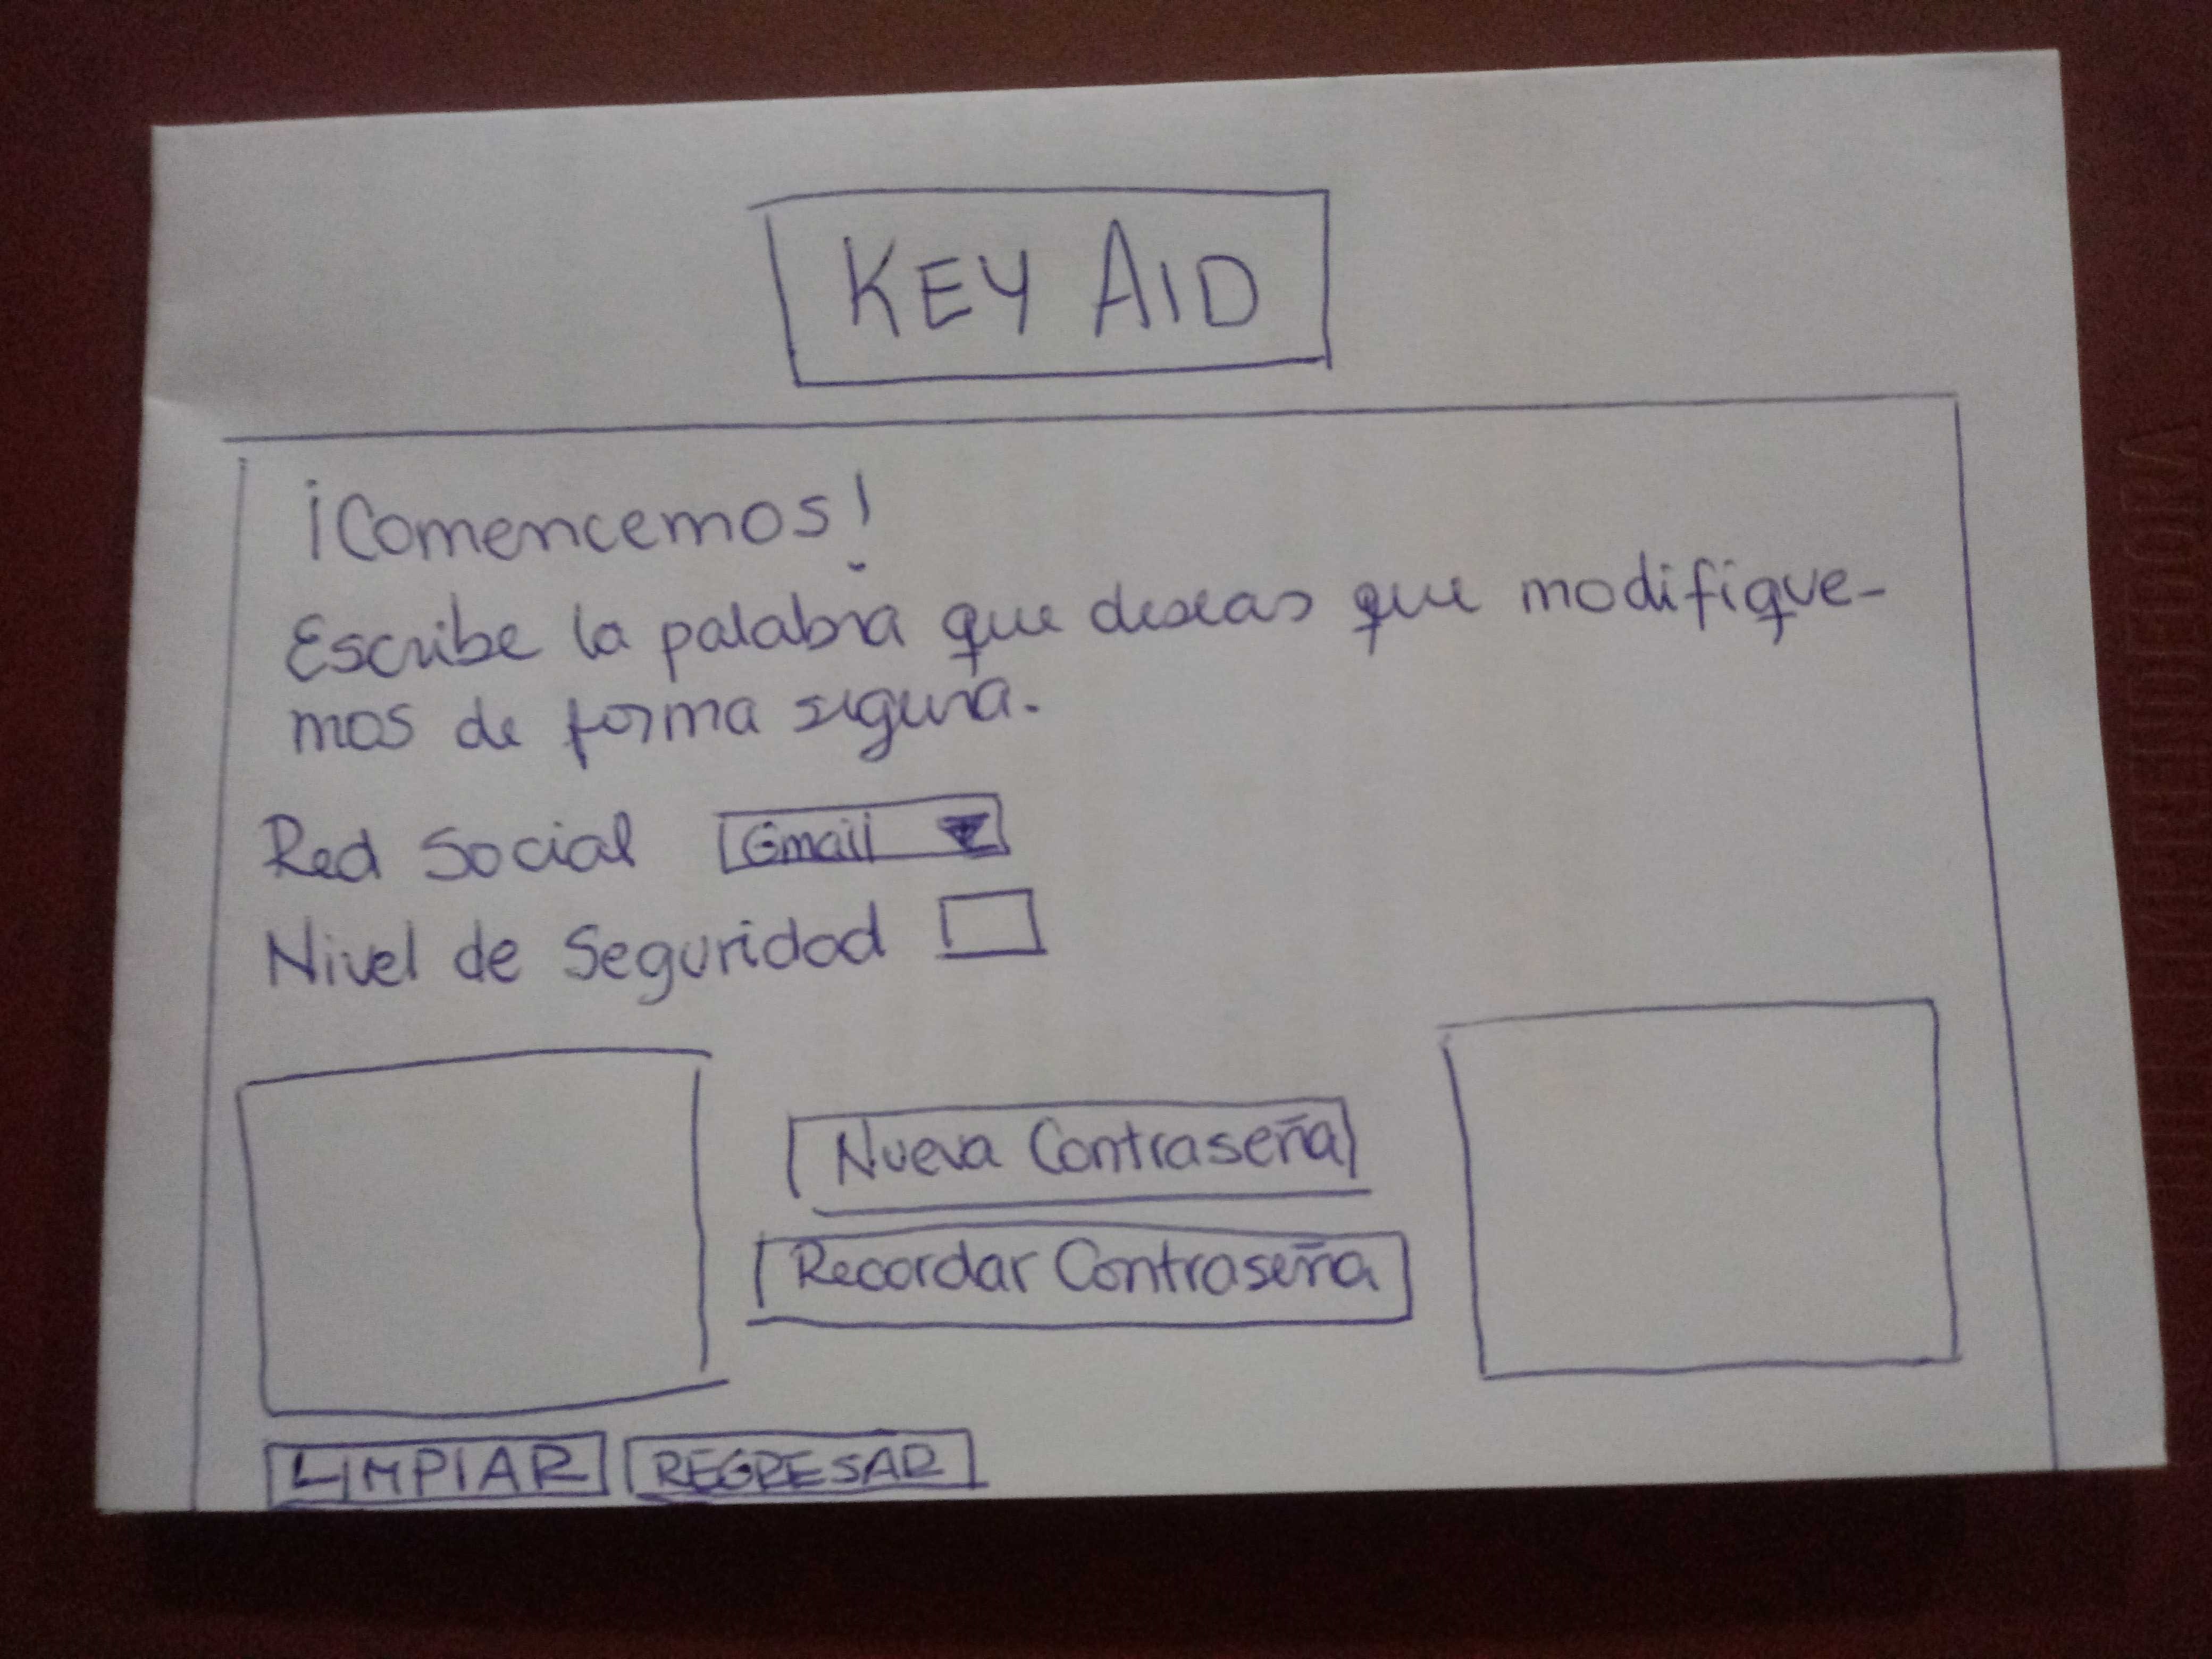 KEY AID
¡Comencemos!
Escribe la palabra que deseas que modifique-
mos de forma segura.
Red Social Gmail
Nivel de Seguridad
Nueva Contraseña
Recordar Contraseña
LIMPIAR REGRESAR